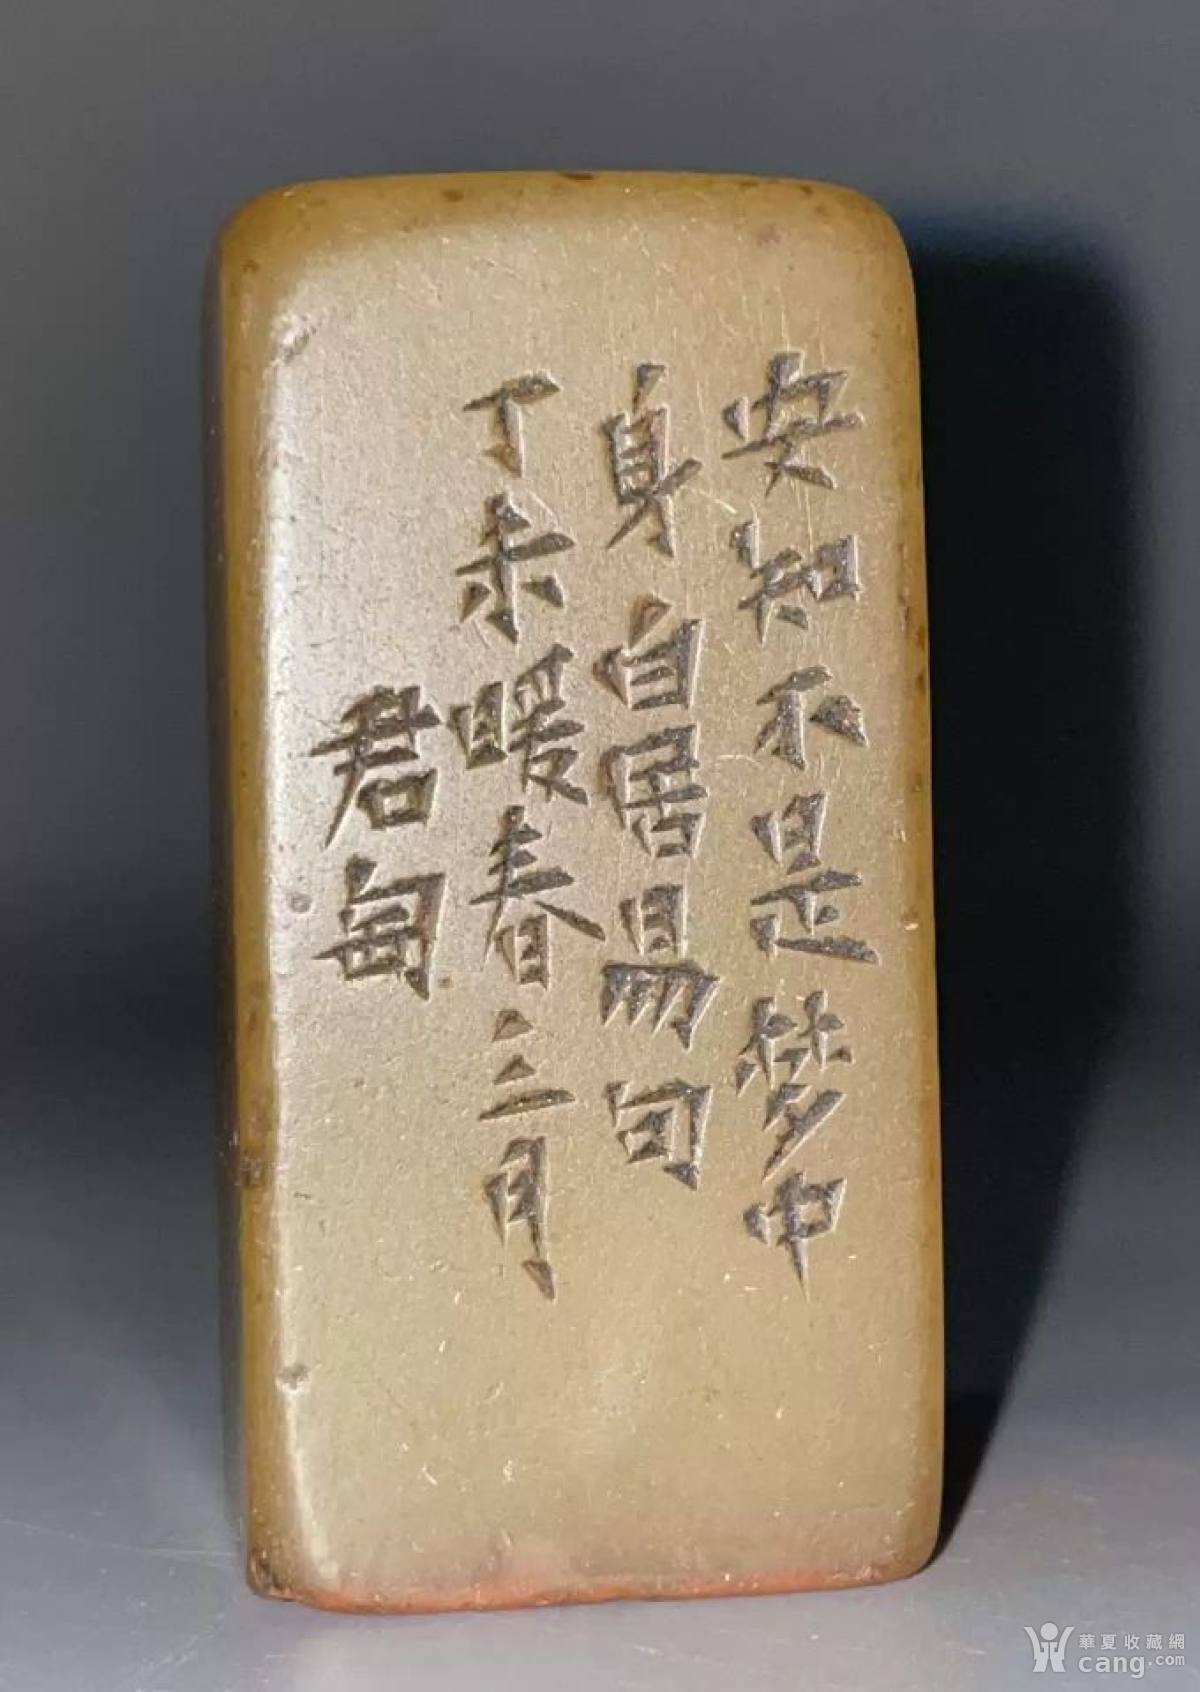 安知不是梦中
身自居易句
丁未暖春三月
君匋
華夏收藏網
cang.com